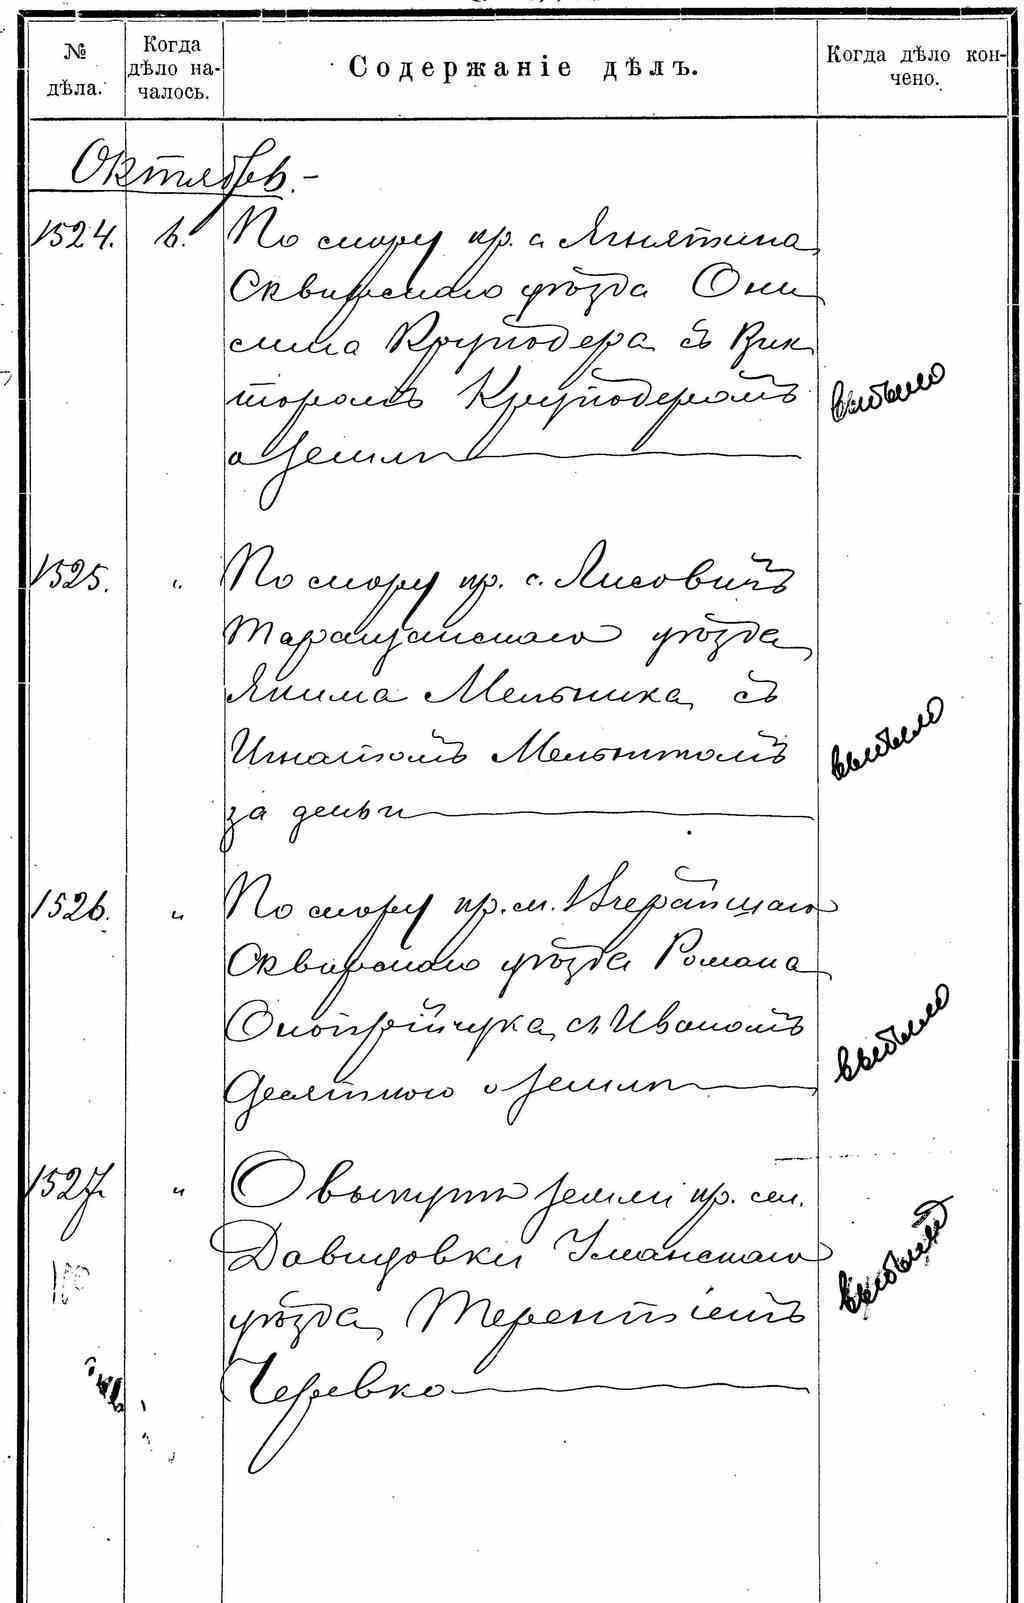 № дѣла.
Когда дѣло на-
чалось.
Содержаніе дѣлъ.
Когда дѣло кон-
чено.
Октябрь.-
1524. 6. По спору кр. с. Ягнятина
Сквирскаго уѣзда Они
сима Круподера съ Вик
торомъ Круподеромъ
о землѣ
выбыло
1525. " По спору кр. с. Лисовичъ
Таращанскаго уѣзда
Якима Мельника съ
Игнатомъ Мельникомъ
за деньги
выбыло
1526. " По спору кр. м. Вчерайшаго
Сквирскаго уѣзда Романа
Оноприйчука съ Иваномъ
Десятного о землѣ
выбыло
1527. " О выкупѣ земли кр. сел.
Давидовки Уманскаго
уѣзда Терентіемъ
Черевко
выбыло